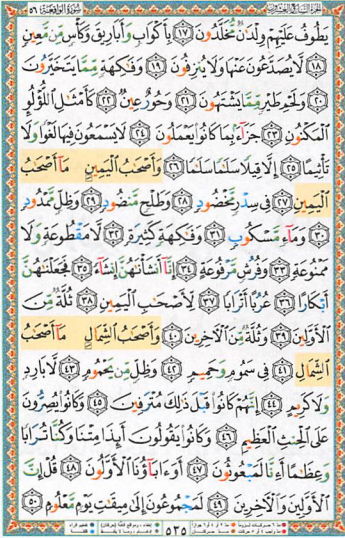 سورة الواقعة ٥٦
يَطُوفُ عَلَيْهِمْ وِلْدَٰنٌ مُّخَلَّدُونَ ١٧ بِأَكْوَابٍ وَأَبَارِيقَ وَكَأْسٍ مِّن مَّعِينٍ
١٨ لَّا يُصَدَّعُونَ عَنْهَا وَلَا يُنزِفُونَ ١٩ وَفَٰكِهَةٍ مِّمَّا يَتَخَيَّرُونَ
٢٠ وَلَحْمِ طَيْرٍ مِّمَّا يَشْتَهُونَ ٢١ وَحُورٌ عِينٌ ٢٢ كَأَمْثَٰلِ اللُّؤْلُؤِ
الْمَكْنُونِ ٢٣ جَزَآءً بِمَا كَانُوا يَعْمَلُونَ ٢٤ لَا يَسْمَعُونَ فِيهَا لَغْوًا وَلَا
تَأْثِيمًا ٢٥ إِلَّا قِيلًا سَلَٰمًا سَلَٰمًا ٢٦ وَأَصْحَٰبُ الْيَمِينِ مَآ أَصْحَٰبُ
الْيَمِينِ ٢٧ فِي سِدْرٍ مَّخْضُودٍ ٢٨ وَطَلْحٍ مَّنضُودٍ ٢٩ وَظِلٍّ مَّمْدُودٍ
٣٠ وَمَآءٍ مَّسْكُوبٍ ٣١ وَفَٰكِهَةٍ كَثِيرَةٍ ٣٢ لَّا مَقْطُوعَةٍ وَلَا
مَمْنُوعَةٍ ٣٣ وَفُرُشٍ مَّرْفُوعَةٍ ٣٤ إِنَّآ أَنشَأْنَٰهُنَّ إِنشَآءً ٣٥ فَجَعَلْنَٰهُنَّ
أَبْكَارًا ٣٦ عُرُبًا أَتْرَابًا ٣٧ لِّأَصْحَٰبِ الْيَمِينِ ٣٨ ثُلَّةٌ مِّنَ
الْأَوَّلِينَ ٣٩ وَثُلَّةٌ مِّنَ الْآخِرِينَ ٤٠ وَأَصْحَٰبُ الشِّمَالِ مَآ أَصْحَٰبُ
الشِّمَالِ ٤١ فِي سَمُومٍ وَحَمِيمٍ ٤٢ وَظِلٍّ مِّن يَحْمُومٍ ٤٣ لَّا بَارِدٍ
وَلَا كَرِيمٍ ٤٤ إِنَّهُمْ كَانُوا قَبْلَ ذَٰلِكَ مُتْرَفِينَ ٤٥ وَكَانُوا يُصِرُّونَ
عَلَى الْحِنثِ الْعَظِيمِ ٤٦ وَكَانُوا يَقُولُونَ أَئِذَا مِتْنَا وَكُنَّا تُرَابًا
وَعِظَٰمًا أَءِنَّا لَمَبْعُوثُونَ ٤٧ أَوَءَابَآؤُنَا الْأَوَّلُونَ ٤٨ قُلْ إِنَّ
الْأَوَّلِينَ وَالْآخِرِينَ ٤٩ لَمَجْمُوعُونَ إِلَىٰ مِيقَٰتِ يَوْمٍ مَّعْلُومٍ ٥٠
٥٣٥